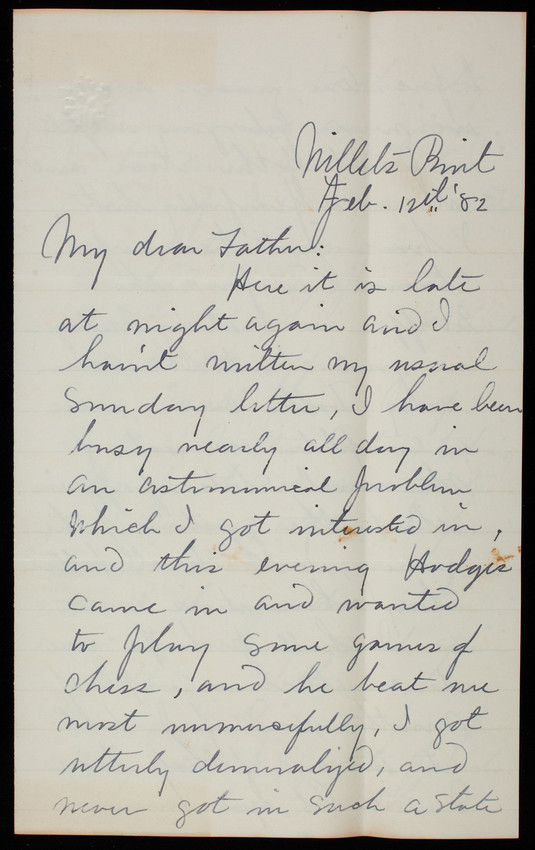 Willets Point
Feb. 12th '82
My dear Father:
Here it is late
at night again and I
havn't written my usual
Sunday letter, I have been
busy nearly all day in
an astronomical problem
which I got interested in,
and this evening Hodges
came in and wanted
to play some games of
chess, and he beat me
most unmercifully, I got
utterly demoralized, and
never got in such a state